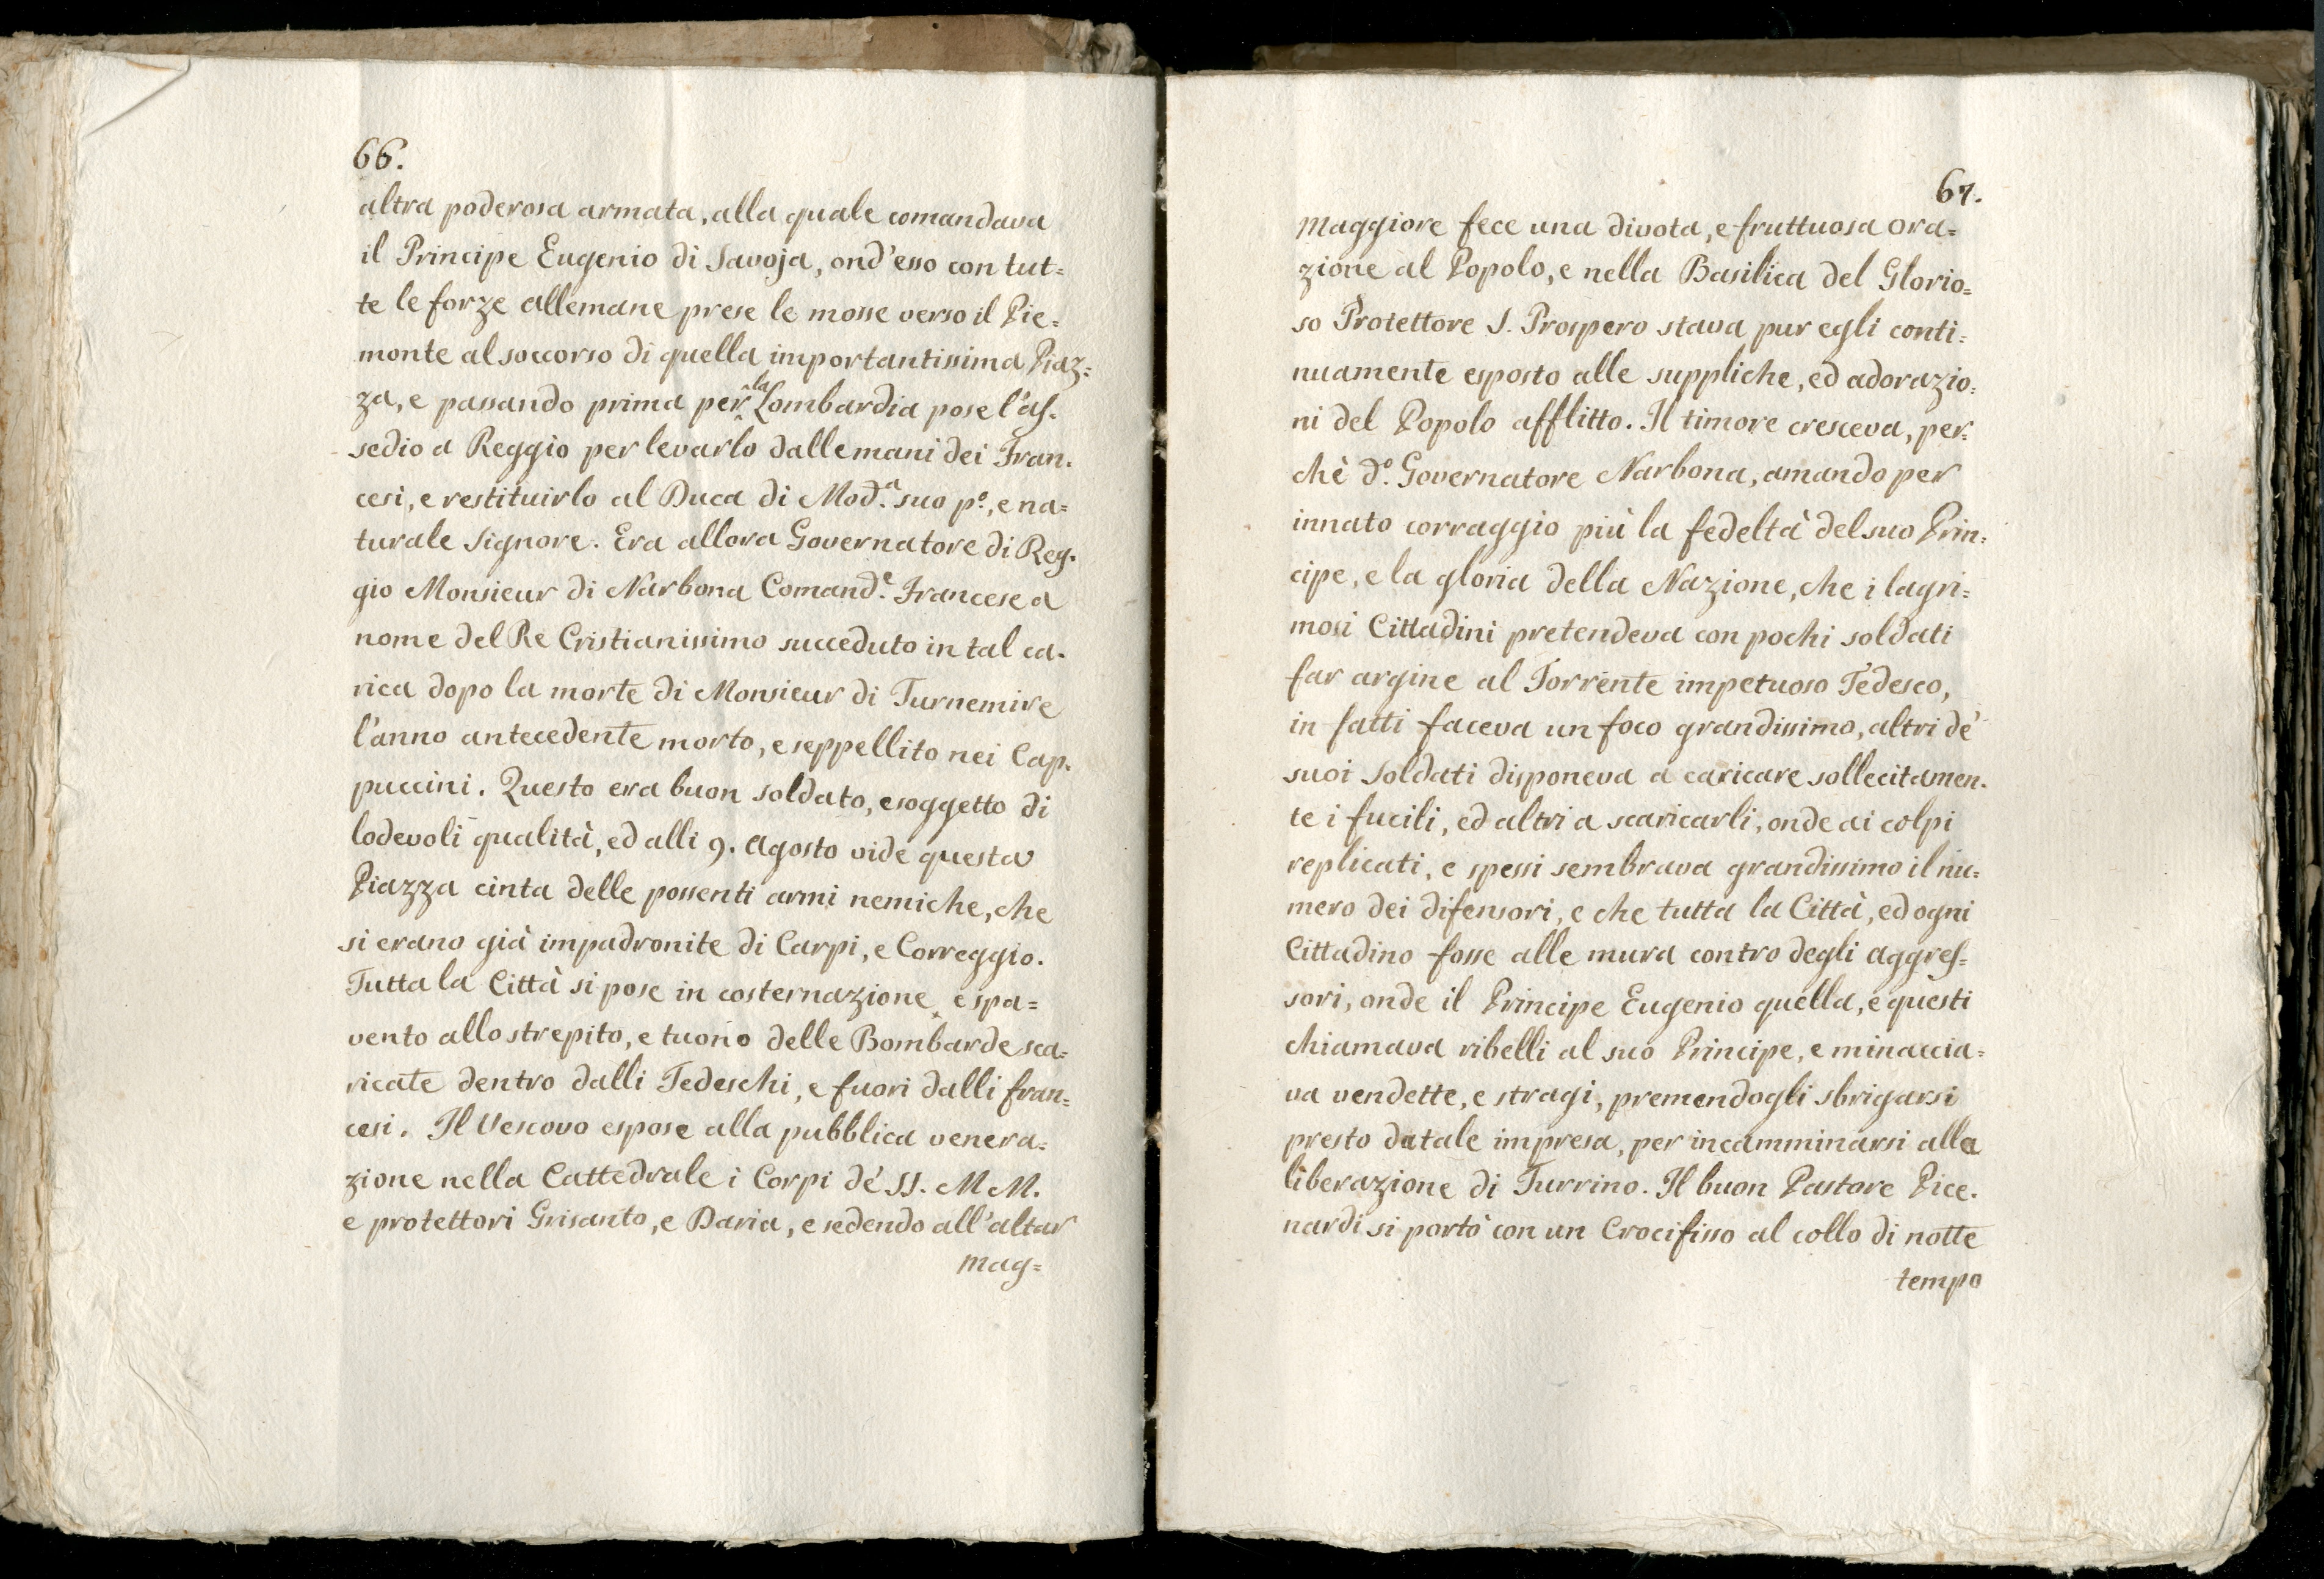 66.
altra poderosa armata, alla quale comandava
il Principe Eugenio di Savoja, ond'esso con tut=
te le forze allemane prese le mosse verso il Pie=
monte al soccorso di quella importantissima Piaz=
za, e passando prima per la Lombardia pose l'as=
sedio a Reggio per levarlo dalle mani dei Fran=
cesi, e restituirlo al Duca di Mod.ª suo p.º, e na=
turale Signore. Era allora Governatore di Reg=
gio Monsieur di Narbona Comand.e Francese a
nome del Re Cristianissimo succeduto in tal ca=
rica dopo la morte di Monsieur di Turnemire
l'anno antecedente morto, e seppellito nei Cap=
puccini. Questo era buon soldato, e soggetto di
lodevoli qualità, ed alli 9. Agosto vide questa
Piazza cinta delle possenti armi nemiche, che
si erano già impadronite di Carpi, e Correggio.
Tutta la Città si pose in costernazione, e spa=
vento allo strepito, e tuono delle Bombarde sca=
ricate dentro dalli Tedeschi, e fuori dalli fran=
cesi. Il Vescovo espose alla pubblica venera=
zione nella Cattedrale i Corpi de' SS. M M.
e protettori Grisanto, e Daria, e sedendo all'altar
mag=
67.
maggiore fece una divota, e fruttuosa ora=
zione al Popolo, e nella Basilica del Glorio=
so Protettore S. Prospero stava pur egli conti=
nuamente esposto alle suppliche, ed adorazio=
ni del Popolo afflitto. Il timore cresceva, per=
chè d.º Governatore Narbona, amando per
innato corraggio più la fedeltà del suo Prin=
cipe, e la gloria della Nazione, che i lagri=
mosi Cittadini pretendeva con pochi soldati
far argine al Torrente impetuoso Tedesco,
in fatti faceva un foco grandissimo, altri de'
suoi soldati disponeva a caricare sollecitamen=
te i fucili, ed altri a scaricarli, onde ai colpi
replicati, e spessi sembrava grandissimo il nu=
mero dei difensori, e che tutta la Città, ed ogni
Cittadino fosse alle mura contro degli aggres=
sori, onde il Principe Eugenio quella, e questi
chiamava ribelli al suo Principe, e minaccia=
va vendette, e stragi, premendogli sbrigarsi
presto da tale impresa, per incamminarsi alla
liberazione di Turrino. Il buon Pastore Pice=
nardi si portò con un Crocifisso al collo di notte
tempo